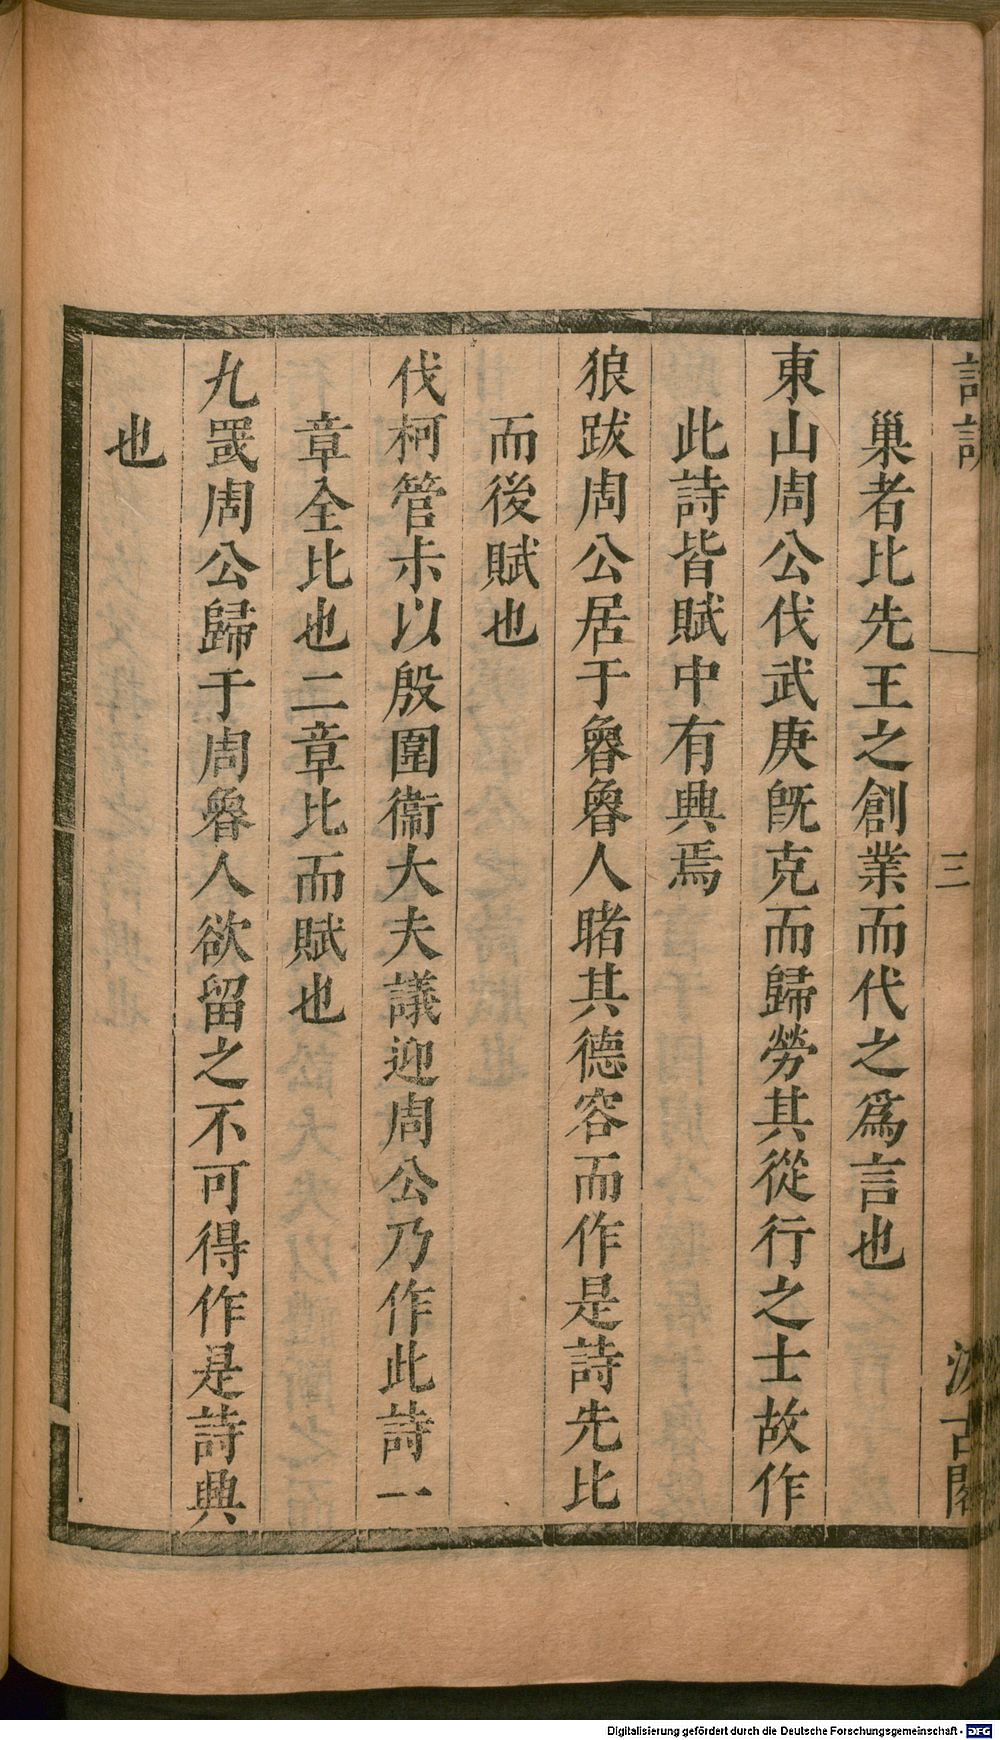 巢者比先王之創業而代之爲言也
東山周公伐武庚旣克而歸勞其從行之士故作
此詩皆賦中有興焉
狼跋周公居于魯魯人睹其德容而作是詩先比
而後賦也
伐柯管未以殷圍衞大夫議迎周公乃作此詩一
章全比也二章比而賦也
九罭周公歸于周魯人欲留之不可得作是詩興
也
三
古閣
Digitalisierung gefördert durch die Deutsche Forschungsgemeinschaft - DFG